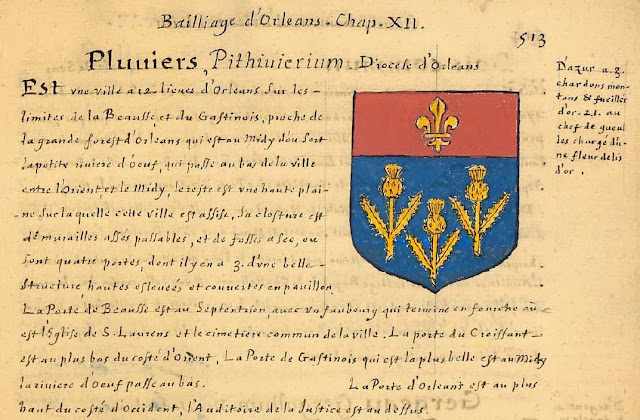 Bailliage d'Orleans. Chap. XII.
513
Pluuiers, Pithiuierium. Diocése d'Orleans
Est vne ville a 12. lieues d'Orleans sur les
limites de la Beausse et du Gastinois, proche de
la grande forest d'Orleans qui est au Midy d'ou sort
la petite riuiere d'Oeuf, qui passe au bas de la ville
entre l'Orient et le Midy, le reste est vne haute plai-
ne sur la quelle cette ville est assise, sa closture est
de murailles assés passables, et de fossés a sec, ou
sont quatre portes, dont il y en a 3. d'vne belle
structure, hautes esleueés et couuertes en pauillon.
La Porte de Beausse est au Septentrion, auec vn faubourg qui termine en fourche où
est l'Eglise de S. Laurens et le cimetiere commun de la ville. La porte du Croissant
est au plus bas du costé d'Orient, La Porte de Gastinois qui est la plus belle est au Midy
la riuiere d'Oeuf passe au bas. La Porte d'Orleans est au plus
haut du costé d'Occident, l'Auditoire de la Justice est au dessus.
D'azur a 3.
chardons mon-
tans & fueillés
d'or. 2.1. au
chef de gueul
les chargé d'u-
ne fleur de lis
d'or.